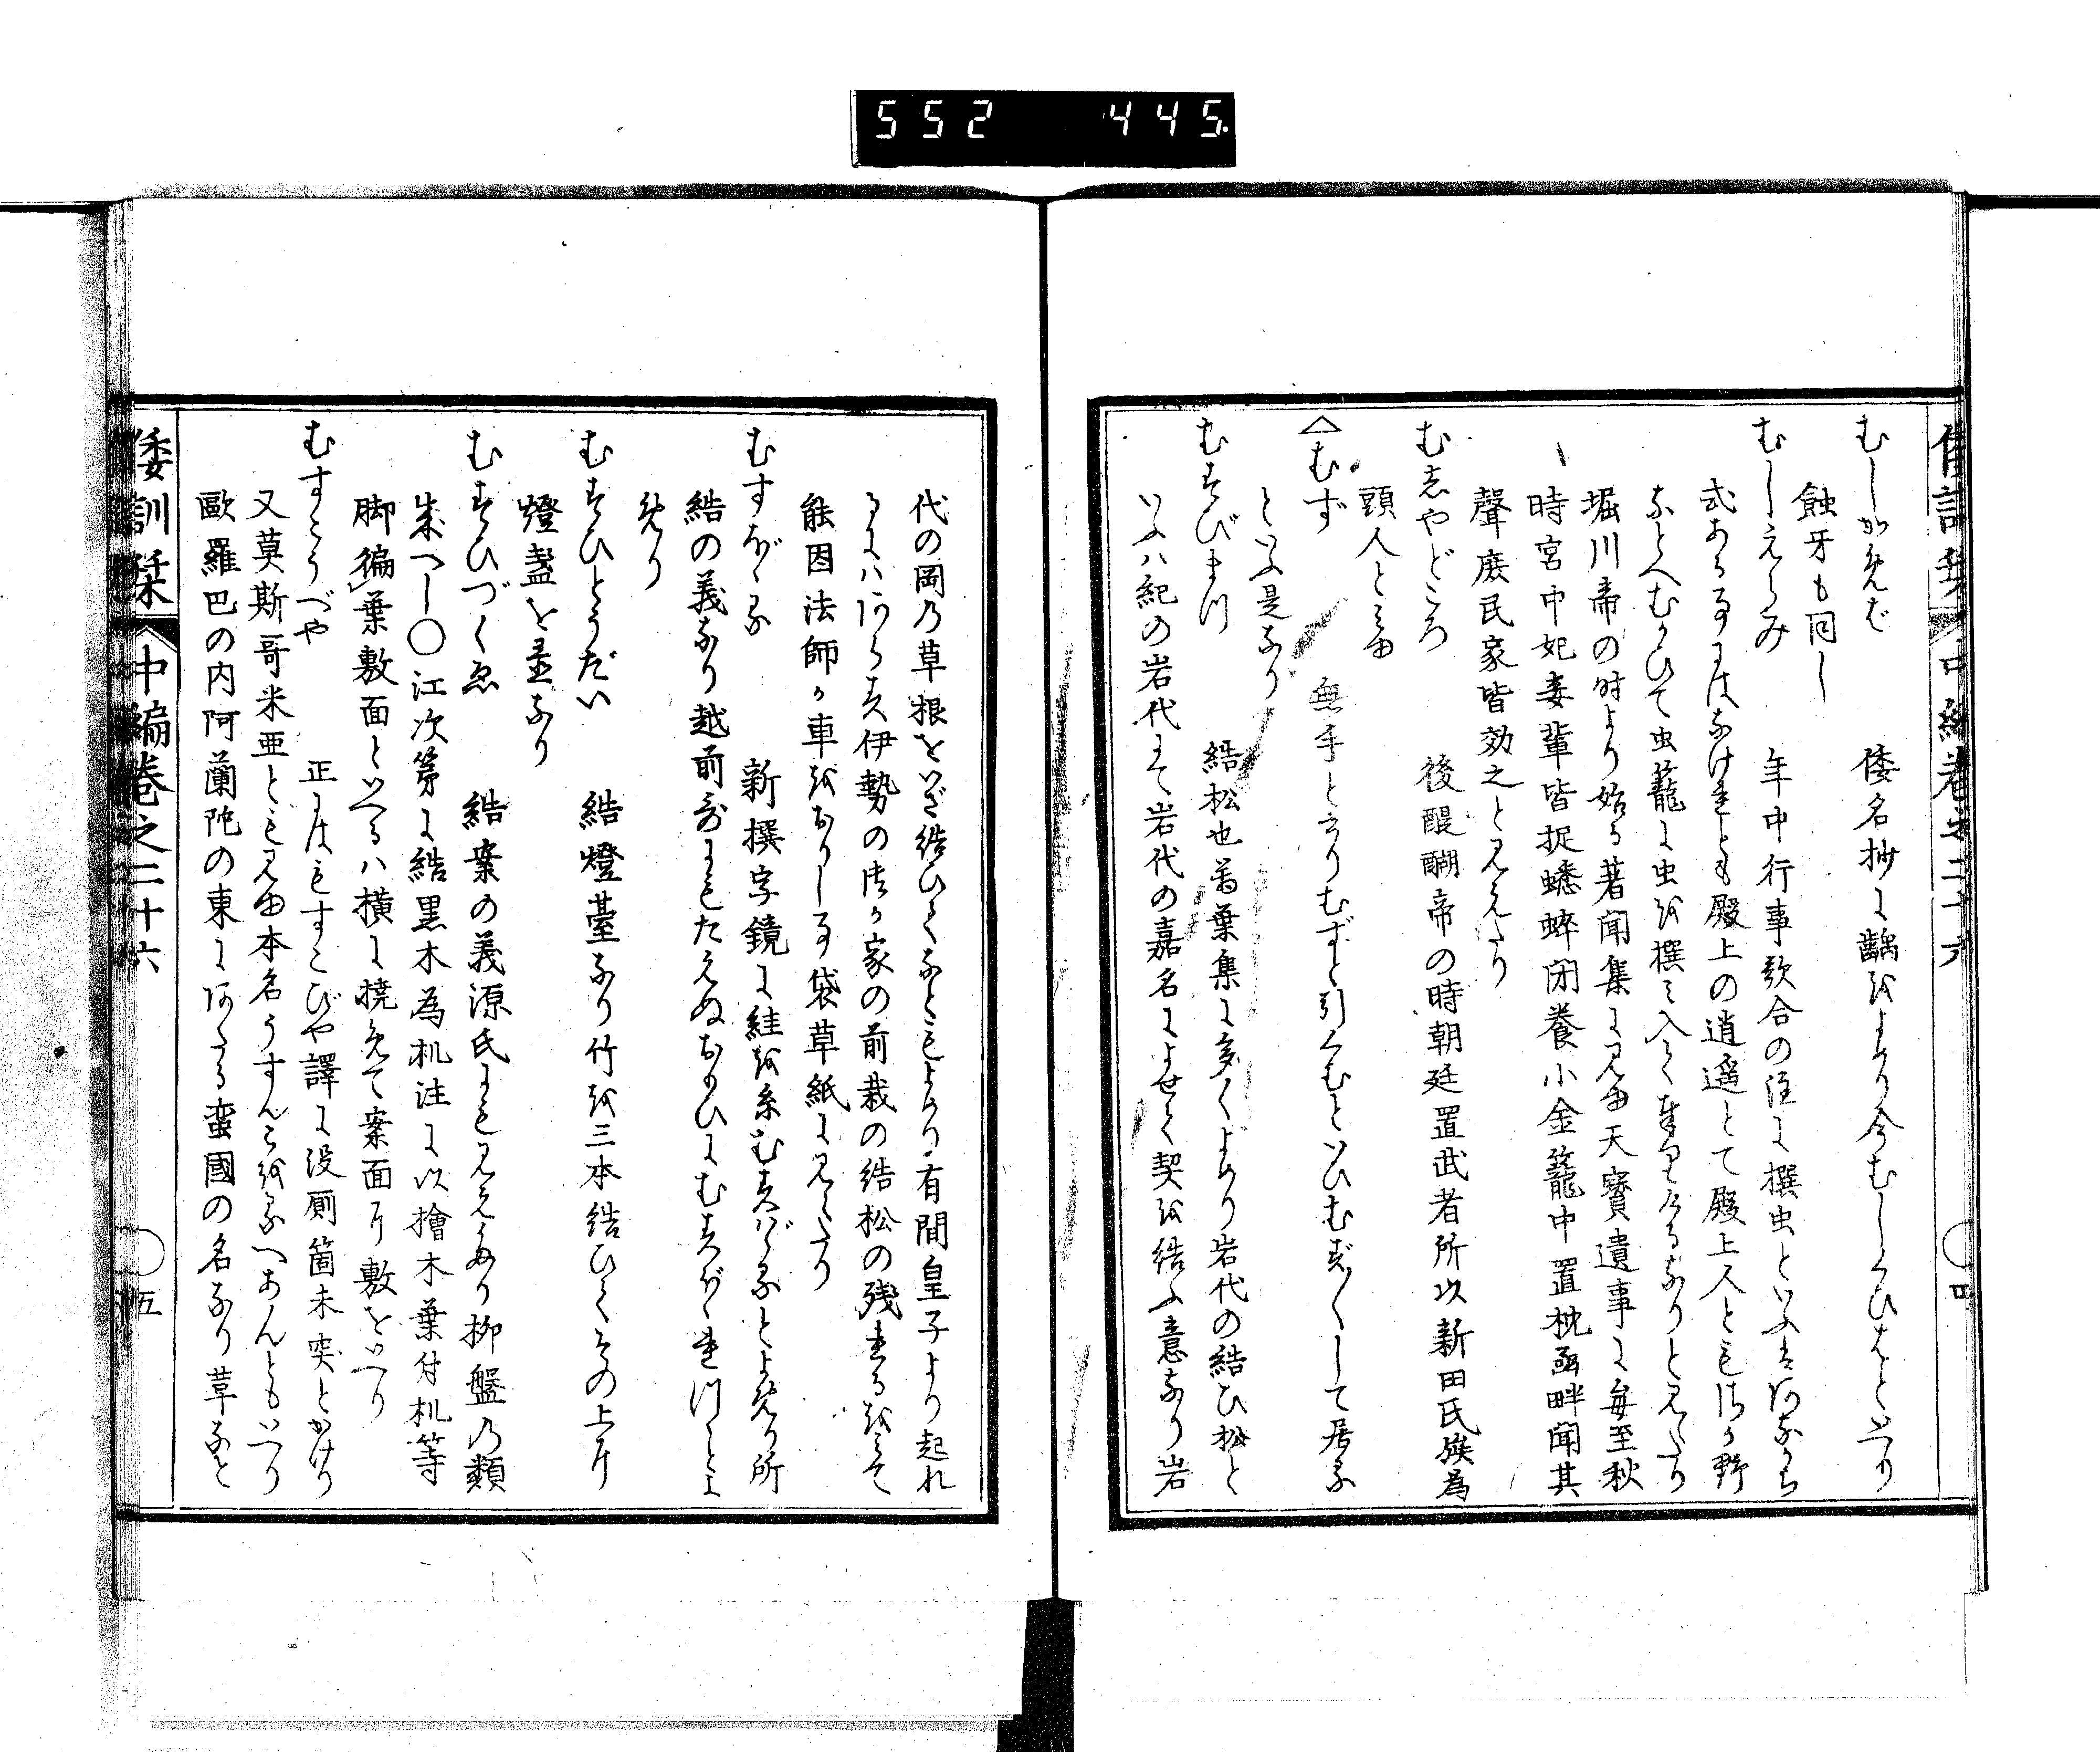 552 445
むしかめば 倭名抄に齲をよめり今むしくひはといへり
蝕牙も同し
むしえらみ 年中行事歌合の注に撰虫といふはあなかち
式ある事にはなけれとも殿上の逍遥とて殿上人とも嵯峨野
なとへむかひて虫籠に虫を撰み入て奉りけるなりと見えたり
堀川帝の時より始る著聞集に見ゆ天寶遺事に毎至秋
時宮中妃妾輩皆捉蟋蟀閉養小金籠中置枕函畔聞其
聲庶民家皆効之と見えたり
むしやどころ 後醍醐帝の時朝廷置武者所以新田氏族為
頭人とみゆ
△むず 無手とかけりむずと引くむといひむず〳〵して居る
といふ是なり
むすびまつ 結松也萬葉集に多くよめり岩代の結ひ松と
いふハ紀の岩代にて岩代の嘉名によせて契を結ふ意なり岩
倭訓栞 中編巻之二十六 五
代の岡乃草根をいざ結ひてなともよめり有間皇子より起れ
るにハあらす伊勢の御か家の前栽の結松の残れるをみて
能因法師か車をおりし事袋草紙に見えたり
むすぼゝる 新撰字鏡に絓を糸むすぼゝるとよめり所
結の義なり越前哥にもたえぬおもひにむすぼゝれつゝとよ
めり
むすひとうだい 結燈臺なり竹を三本結ひてその上に
燈盞を置なり
むすひづくゑ 結案の義源氏にも見えたり柳盤乃類
成へし〇江次第に結黒木為机注に以擔木葉付机等
脚徧葉敷面といへるハ横に撓めて案面に敷をいへり
むすこうべや 正にはもすこびや譯に没厠箇未突とかけり
又莫斯哥米亜とも見ゆ本名うすんこをるへあんともいへり
歐羅巴の内阿蘭陀の東にあたる蛮國の名なり草なと